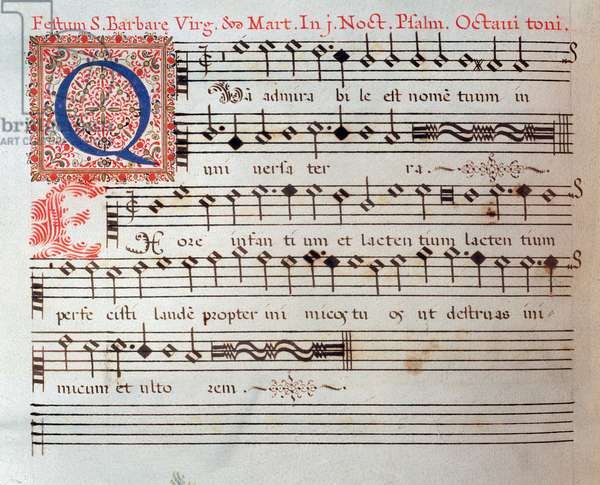 Festum S. Barbare Virg. & Mart. In j. Noct. Psalm. Octaui toni.
Quã admira bi le est nomẽ tuum in
uni uersa ter ra.
Ex ore infan ti um et lacten tium lacten tium
perfe cisti laudẽ propter ini micostu os ut destruas ini
micum et ulto rem.